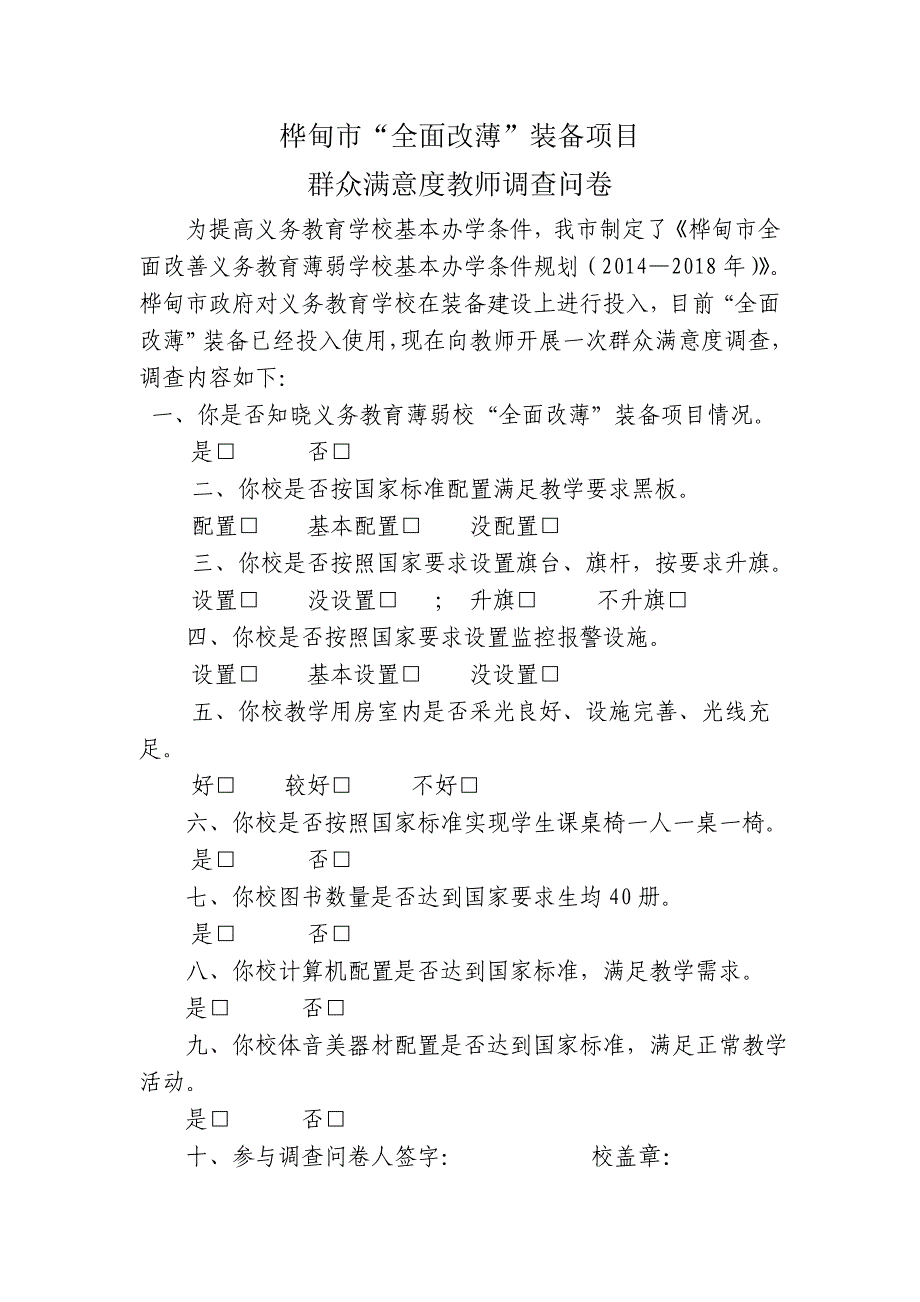 桦甸市“全面改薄”装备项目
群众满意度教师调查问卷
为提高义务教育学校基本办学条件，我市制定了《桦甸市全
面改善义务教育薄弱学校基本办学条件规划（2014—2018年）》。
桦甸市政府对义务教育学校在装备建设上进行投入，目前“全面
改薄”装备已经投入使用，现在向教师开展一次群众满意度调查，
调查内容如下：
一、你是否知晓义务教育薄弱校“全面改薄”装备项目情况。
是□ 否□
二、你校是否按国家标准配置满足教学要求黑板。
配置□ 基本配置□ 没配置□
三、你校是否按照国家要求设置旗台、旗杆，按要求升旗。
设置□ 没设置□ ； 升旗□ 不升旗□
四、你校是否按照国家要求设置监控报警设施。
设置□ 基本设置□ 没设置□
五、你校教学用房室内是否采光良好、设施完善、光线充
足。
好□ 较好□ 不好□
六、你校是否按照国家标准实现学生课桌椅一人一桌一椅。
是□ 否□
七、你校图书数量是否达到国家要求生均40册。
是□ 否□
八、你校计算机配置是否达到国家标准，满足教学需求。
是□ 否□
九、你校体音美器材配置是否达到国家标准，满足正常教学
活动。
是□ 否□
十、参与调查问卷人签字： 校盖章：